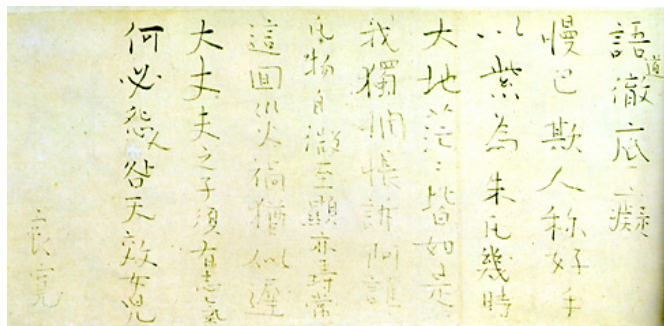 語道徹底癡
慢己欺人称好手
以紫為朱凡幾時
大地茫々皆如是
我獨惆悵訴阿誰
凡物自微至顯亦尋常
這回災禍猶似遲
大丈夫之子須有志氣
何必怨人咎天效女兒
良寛